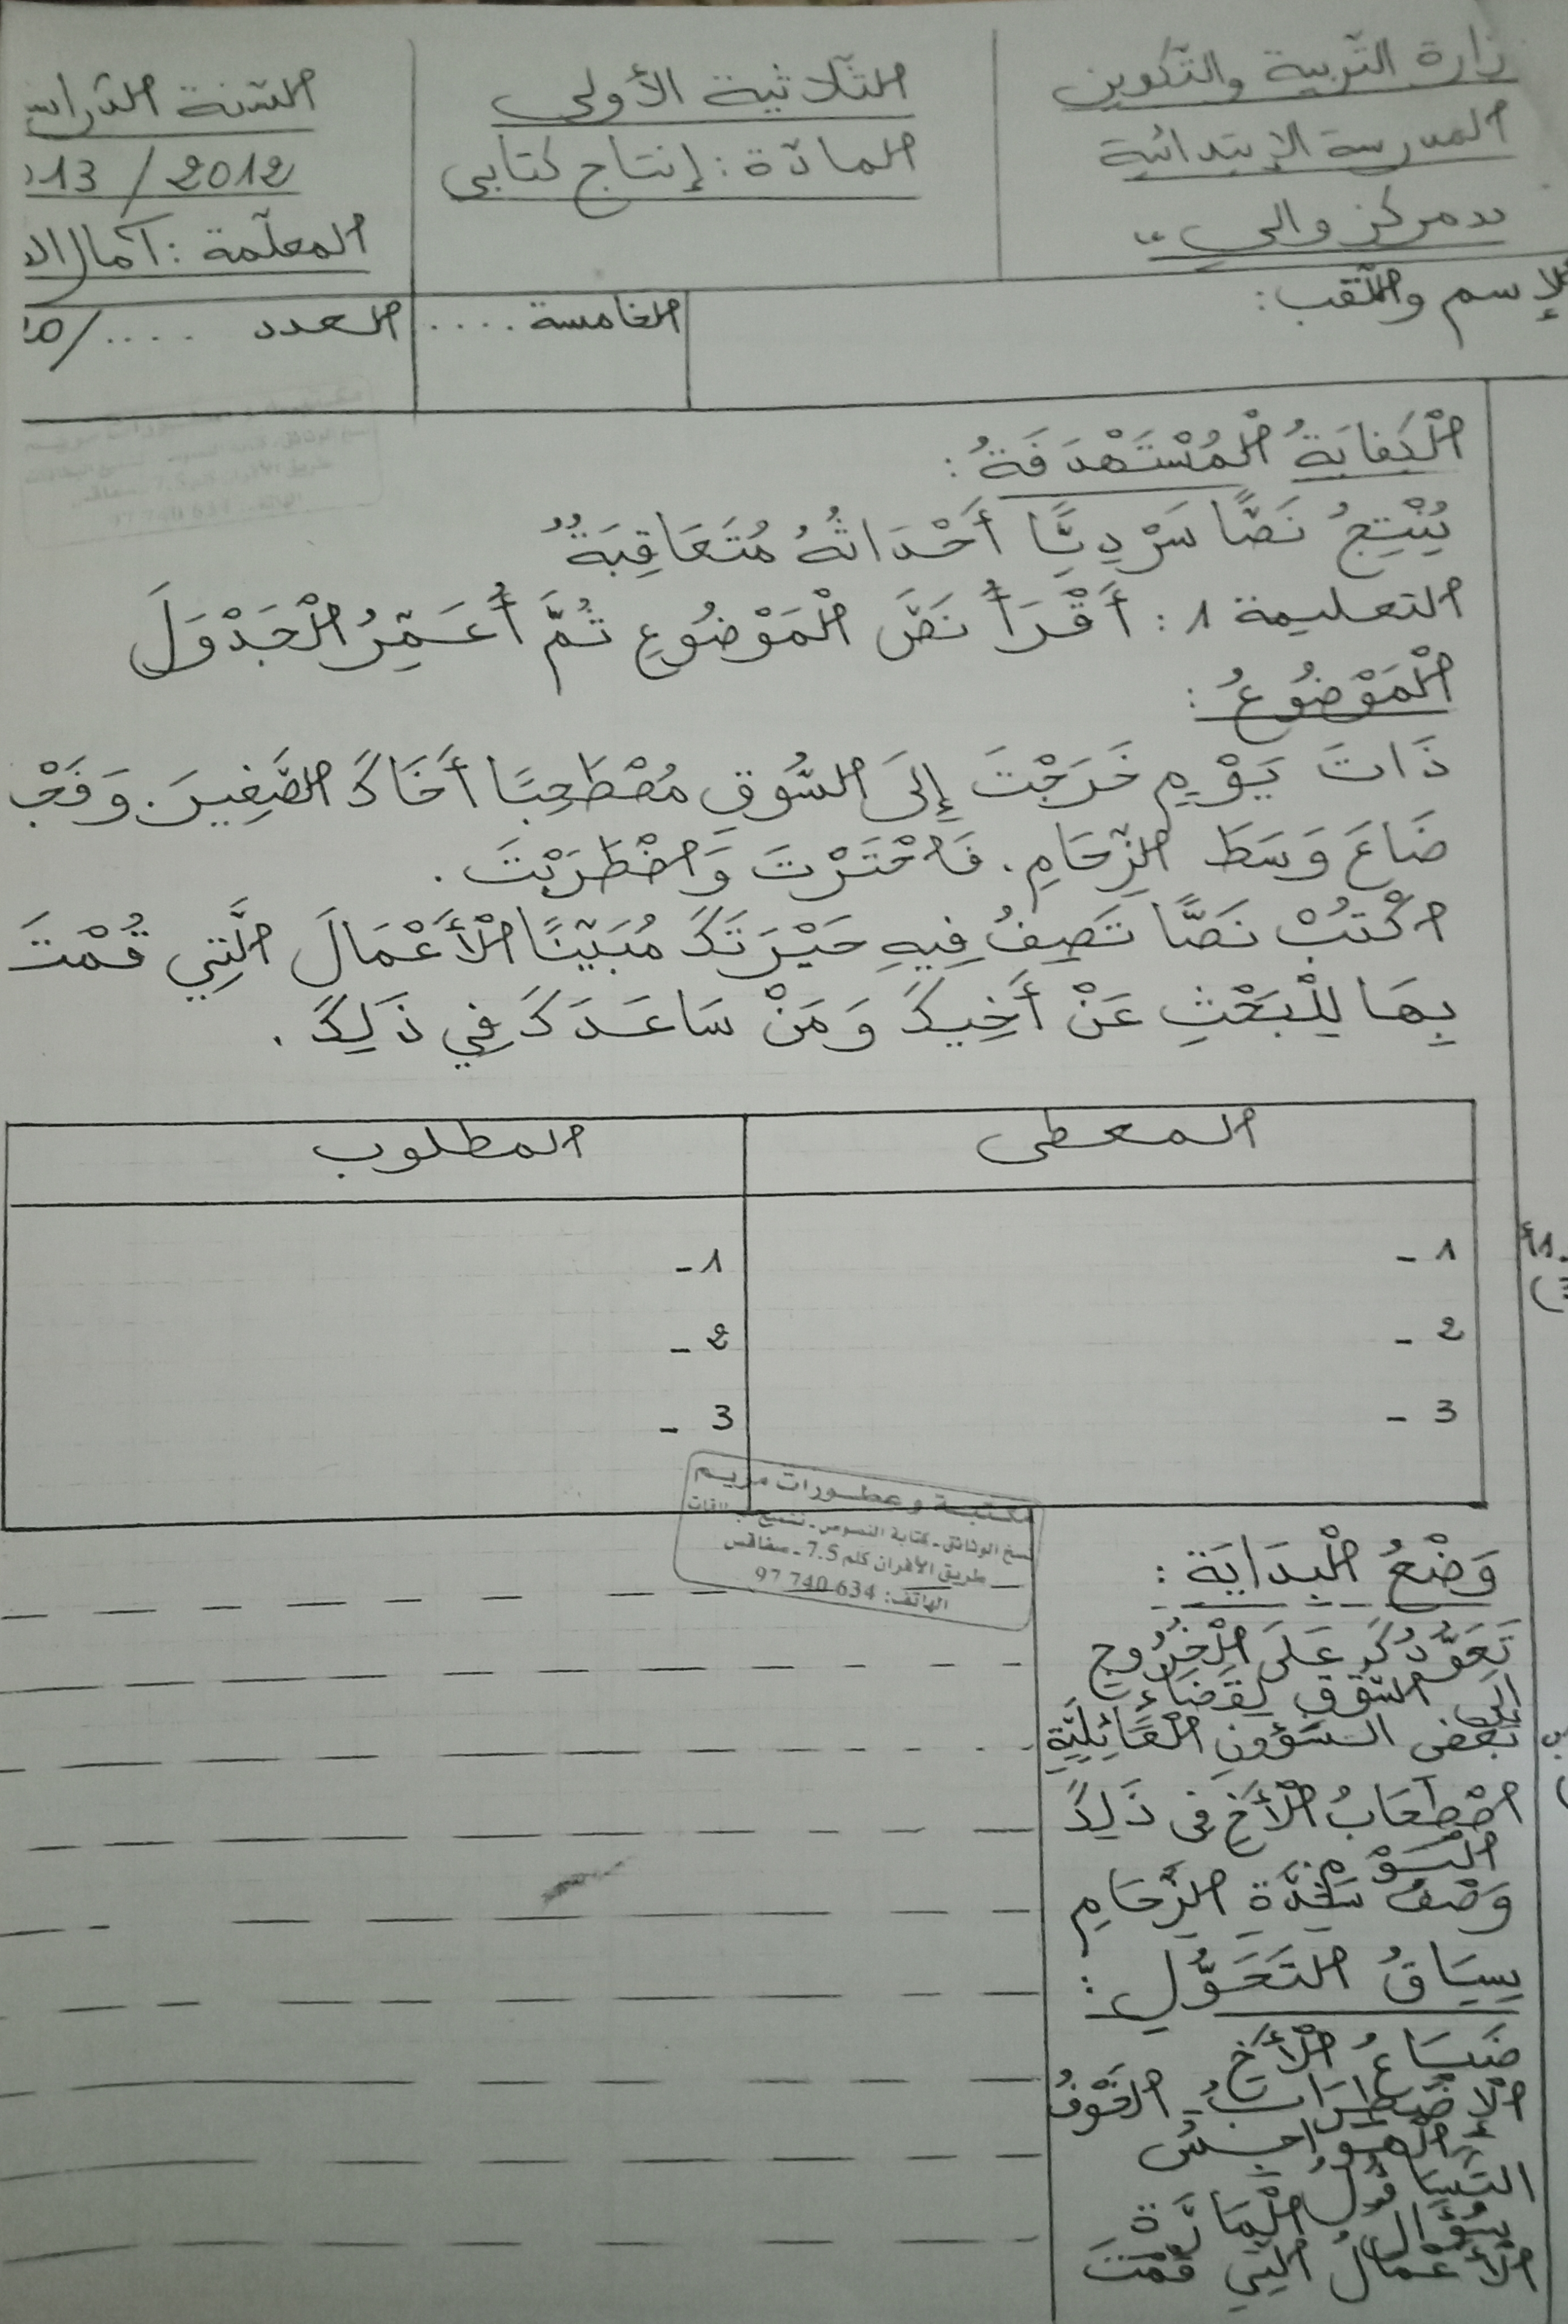 وزارة التربية والتكوين
المدرسة الإبتدائية
"مركز والي"
الثلاثية الأولى
المادة: إنتاج كتابي
السنة
2012 /
المعلّمة: آمال
الإسم واللّقب:
الخامسة ....
العدد ..../
الْكِفَايَةُ الْمُسْتَهْدَفَةُ:
يُنْتِجُ نَصًّا سَرْدِيًّا أَحْدَاثُهُ مُتَعَاقِبَةٌ
التعليمة 1: أَقْرَأُ نَصَّ الْمَوْضُوعِ ثُمَّ أُعَمِّرُ الْجَدْوَلَ
الْمَوْضُوعُ:
ذَاتَ يَوْمٍ خَرَجْتَ إِلَى السُّوقِ مُصْطَحِبًا أَخَاكَ الصَّغِيرَ. وَفَجْ
ضَاعَ وَسَطَ الزِّحَامِ. فَاحْتَرْتَ وَاضْطَرَبْتَ.
اكْتُبْ نَصًّا تَصِفُ فِيهِ حَيْرَتَكَ مُبَيِّنًا الْأَعْمَالَ الَّتِي قُمْتَ
بِهَا لِلْبَحْثِ عَنْ أَخِيكَ وَمَنْ سَاعَدَكَ فِي ذَلِكَ.
المعطى
المطلوب
1 -
1 -
2 -
2 -
3 -
3 -
مكتبة وعطورات مريم
نسخ الوثائق - كتابة النصوص -
طريق الأفران كلم 7.5 - صفاقس
الهاتف: 97 740 634
وَضْعُ الْبِدَايَةِ:
تَعَوُّدُكَ عَلَى الْخُرُوجِ
إلى السّوق لِقَضَاءِ
بَعْضِ الشُّؤُونِ الْعَائِلِيَّةِ
اصْطِحَابُ الْأَخِ فِي ذَلِكَ
الْيَوْمِ
وَصْفُ شِدَّةِ الزِّحَامِ
سِيَاقُ التَّحَوُّلِ:
ضَيَاعُ الْأَخِ
الْاِضْطِرَابُ - الْخَوْفُ
الْهَوَاجِسُ
التَّسَاؤُلُ
سُؤَالُ الْمَارَّةِ
الْأَعْمَالُ الَّتِي قُمْتَ